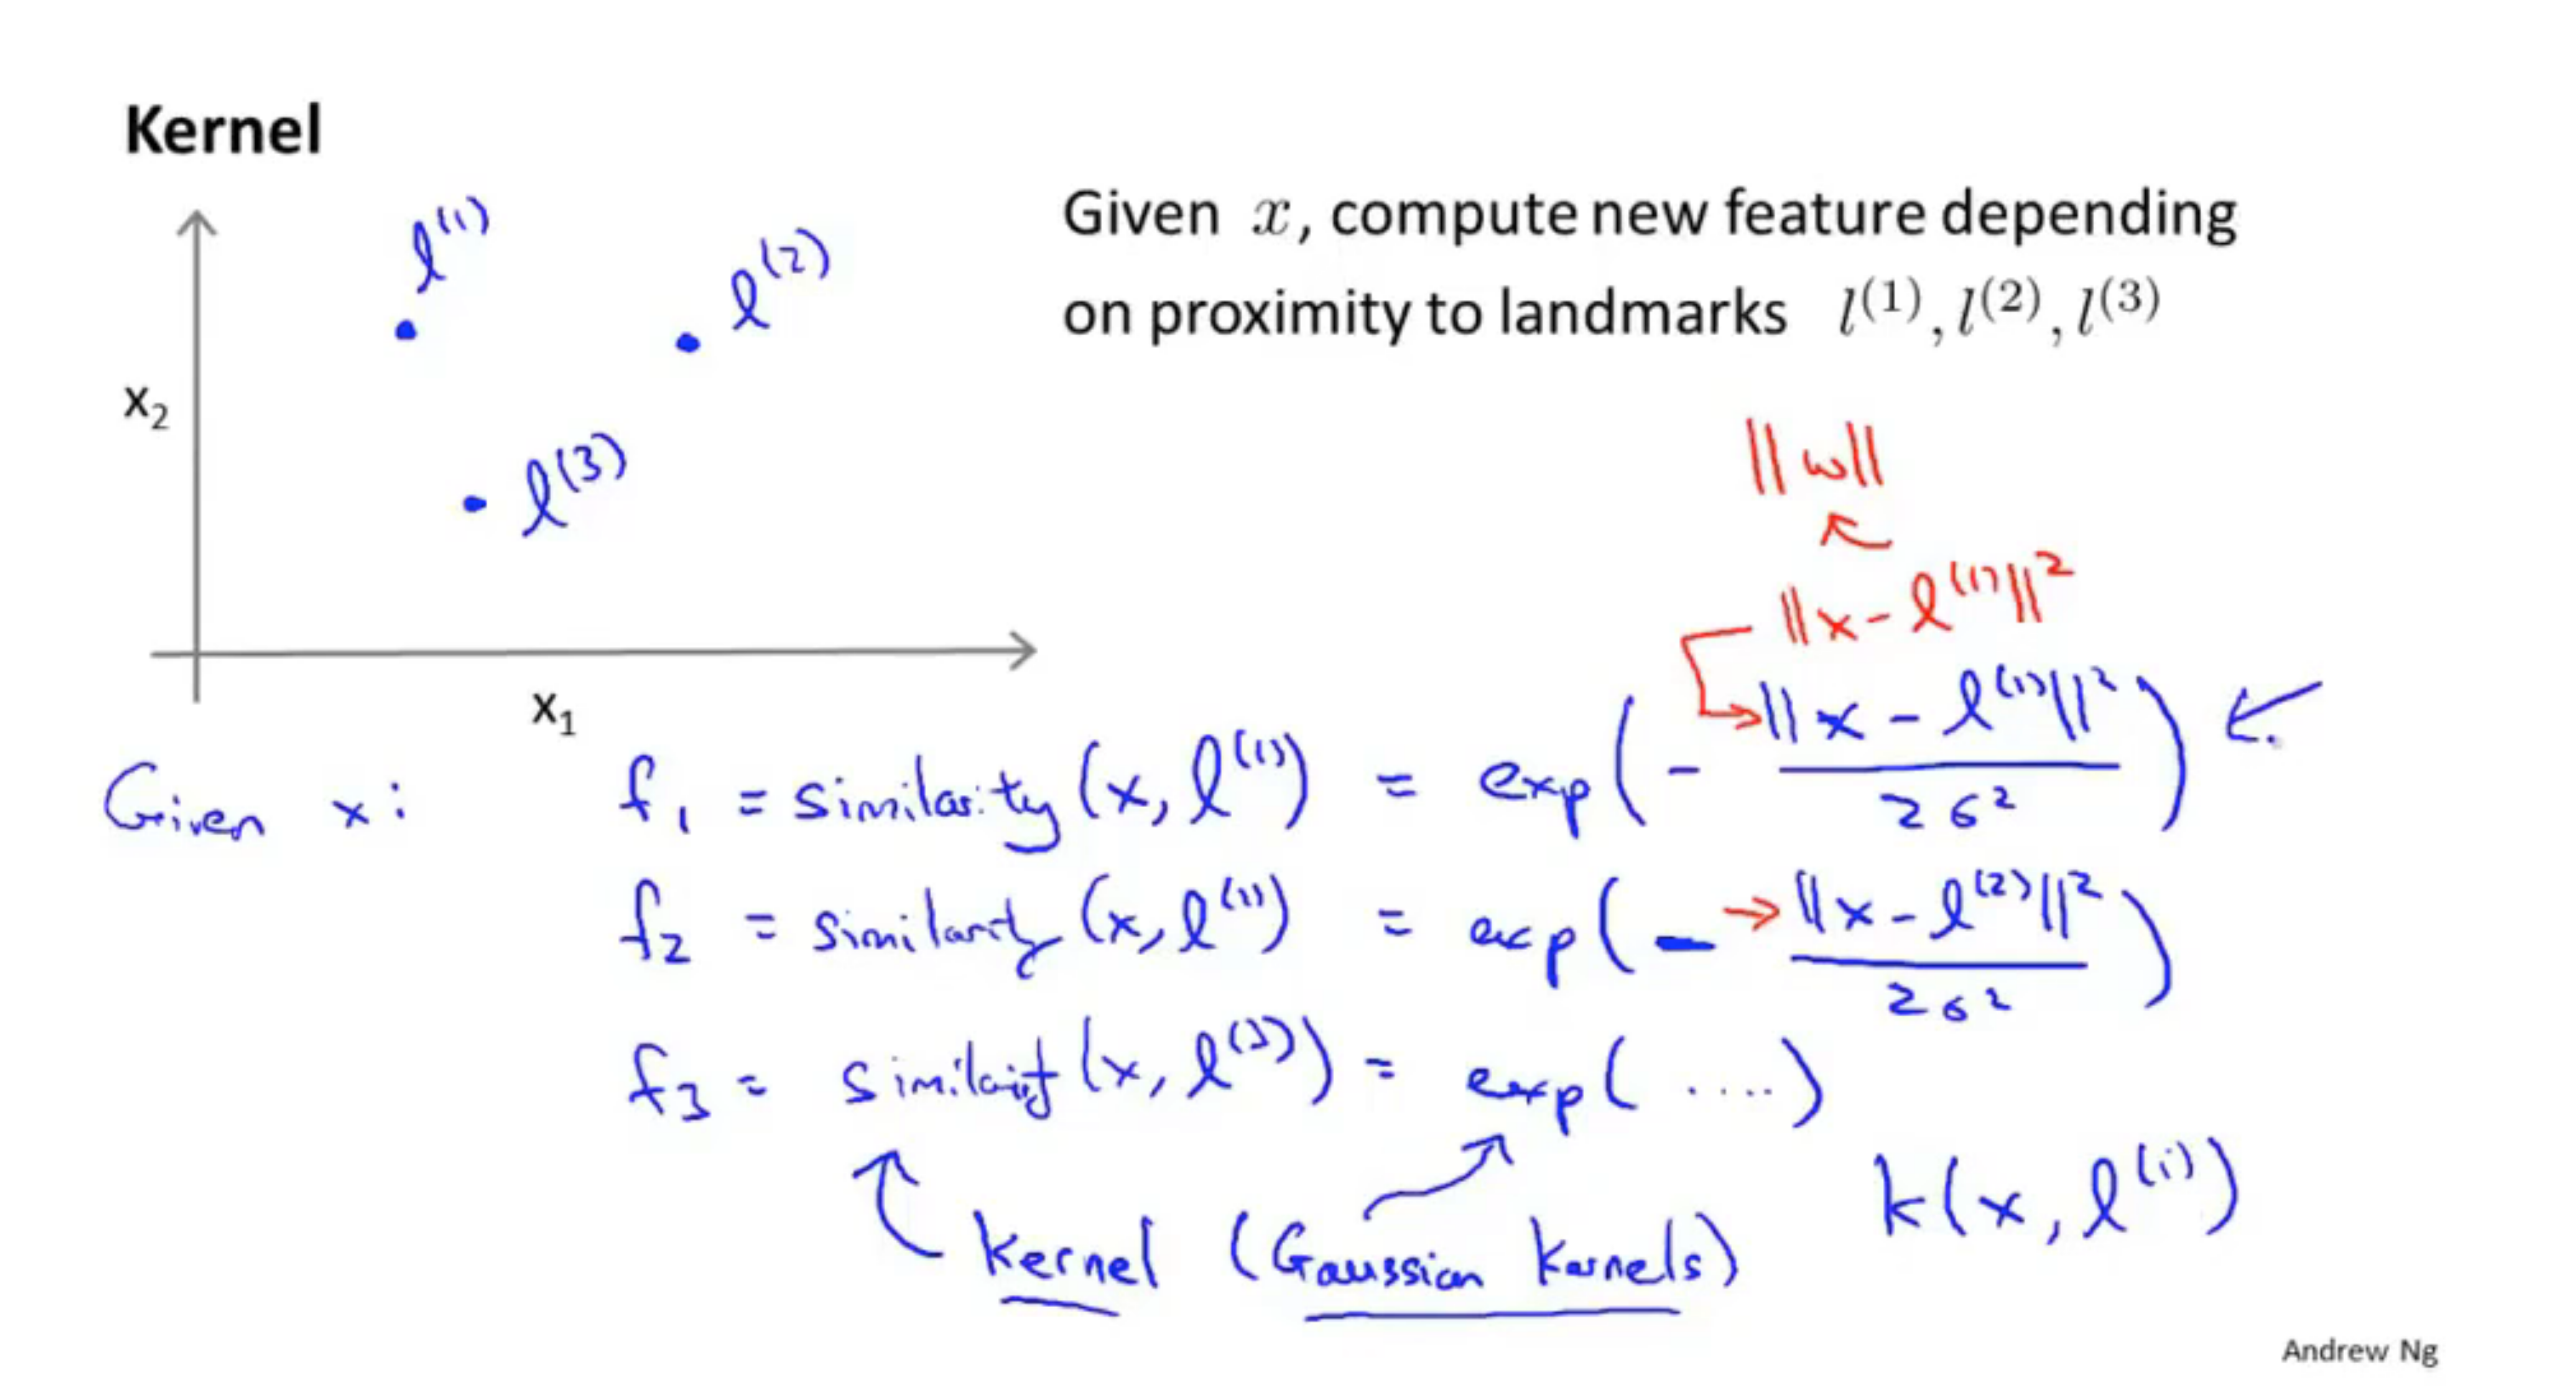 Kernel
Given x, compute new feature depending
on proximity to landmarks l⁽¹⁾, l⁽²⁾, l⁽³⁾
l⁽¹⁾
l⁽²⁾
x₂
l⁽³⁾
x₁
||w||
||x - l⁽¹⁾||²
Given x: f₁ = similarity (x, l⁽¹⁾) = exp(- ||x - l⁽¹⁾||² / 2σ²)
f₂ = similarity (x, l⁽¹⁾) = exp(- ||x - l⁽²⁾||² / 2σ²)
f₃ = similarity (x, l⁽³⁾) = exp( ....)
k(x, l⁽ⁱ⁾)
kernel (Gaussian kernels)
Andrew Ng